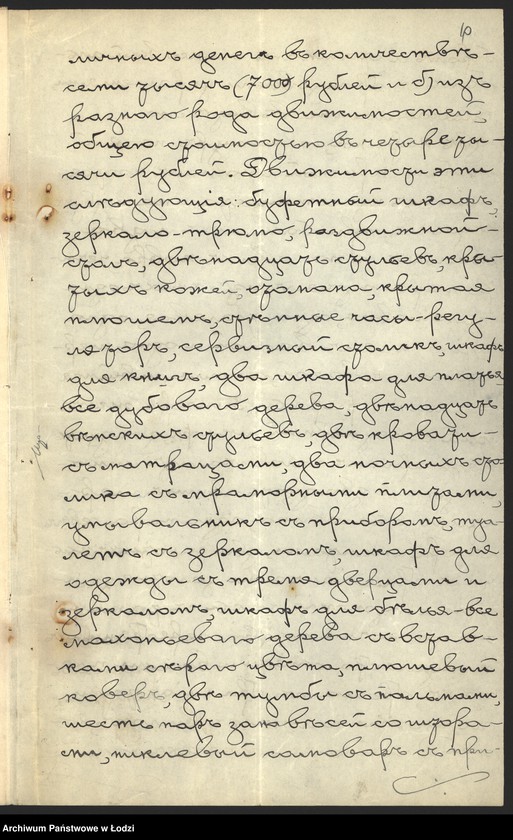 личныхъ денегъ въ количествѣ
семи тысячъ (7000) рублей и б) изъ
разнаго рода движимостей,
общею стоимостью въ четыре ты-
сячи рублей. Движимости эти
слѣдующія: буфетный шкафъ,
зеркало-трюмо, раздвижной
столъ, двѣнадцать стульевъ, кры-
тыхъ кожей, отомана, крытая
плюшемъ, стѣнные часы-регу-
ляторъ, сервизный столикъ, шкафъ
для книгъ, два шкафа для платья
все дубоваго дерева, двѣнадцать
вѣнскихъ стульевъ, двѣ кровати
съ матрацами, два ночныхъ сто-
лика съ мраморными плитами,
умывальникъ съ приборомъ, туа-
летъ съ зеркаломъ, шкафъ для
одежды съ тремя дверцами и
зеркаломъ, шкафъ для бѣлья-все
махоньеваго дерева съ встав-
ками сѣраго цвѣта, плюшевый
коверъ, двѣ тумбы съ пальмами,
шесть паръ занавѣсей со штора-
ми, никлевый самоваръ съ при-
Archiwum Państwowe w Łodzi